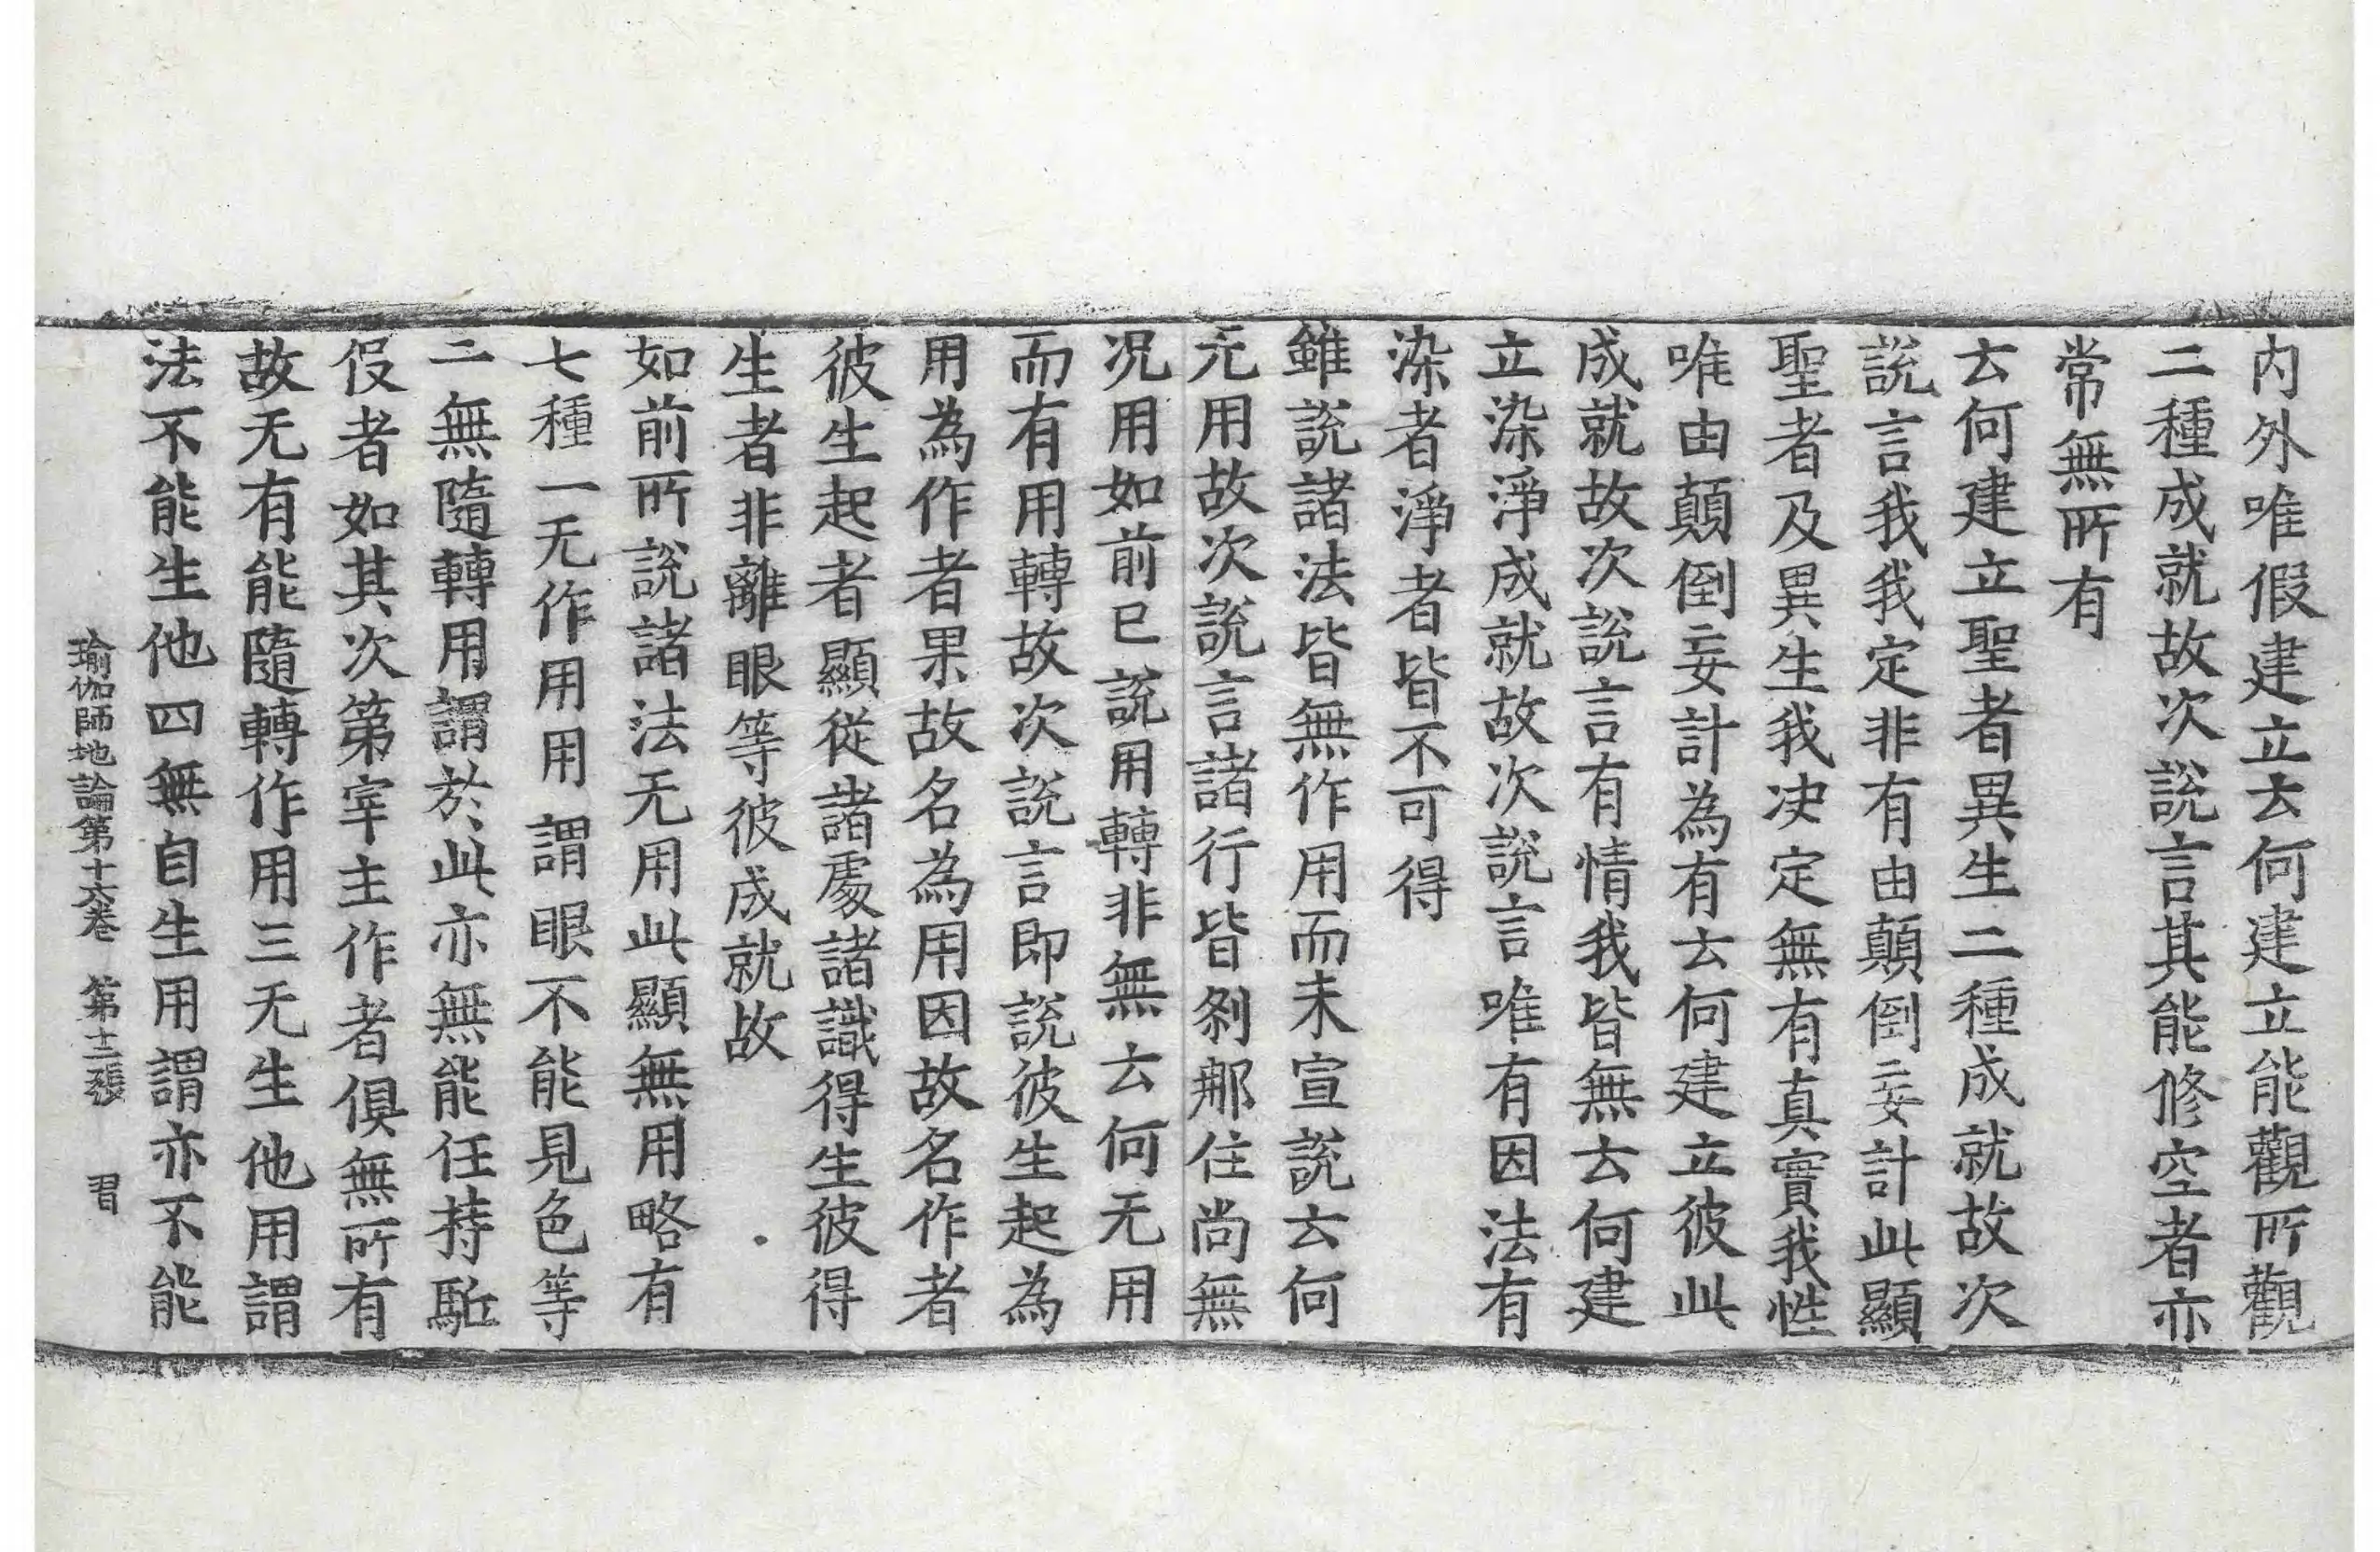 内外唯假建立云何建立能觀所觀
二種成就故次說言其能修空者亦
常無所有
云何建立聖者異生二種成就故次
說言我我定非有由顛倒妄計此顯
聖者及異生我决定無有真實我性
唯由顛倒妄計為有云何建立彼此
成就故次說言有情我皆無云何建
立染淨成就故次說言唯有因法有
染者淨者皆不可得
雖說諸法皆無作用而未宣說云何
无用故次說言諸行皆刹那住尚無
况用如前已說用轉非無云何无用
而有用轉故次說言即說彼生起為
用為作者果故名為用因故名作者
彼生起者顯從諸處諸識得生彼得
生者非離眼等彼成就故
如前所說諸法无用此顯無用略有
七種一无作用用謂眼不能見色等
二無隨轉用謂於此亦無能任持駈
役者如其次第宰主作者俱無所有
故无有能隨轉作用三无生他用謂
法不能生他四無自生用謂亦不能
瑜伽師地論第十六卷 第十二張 習